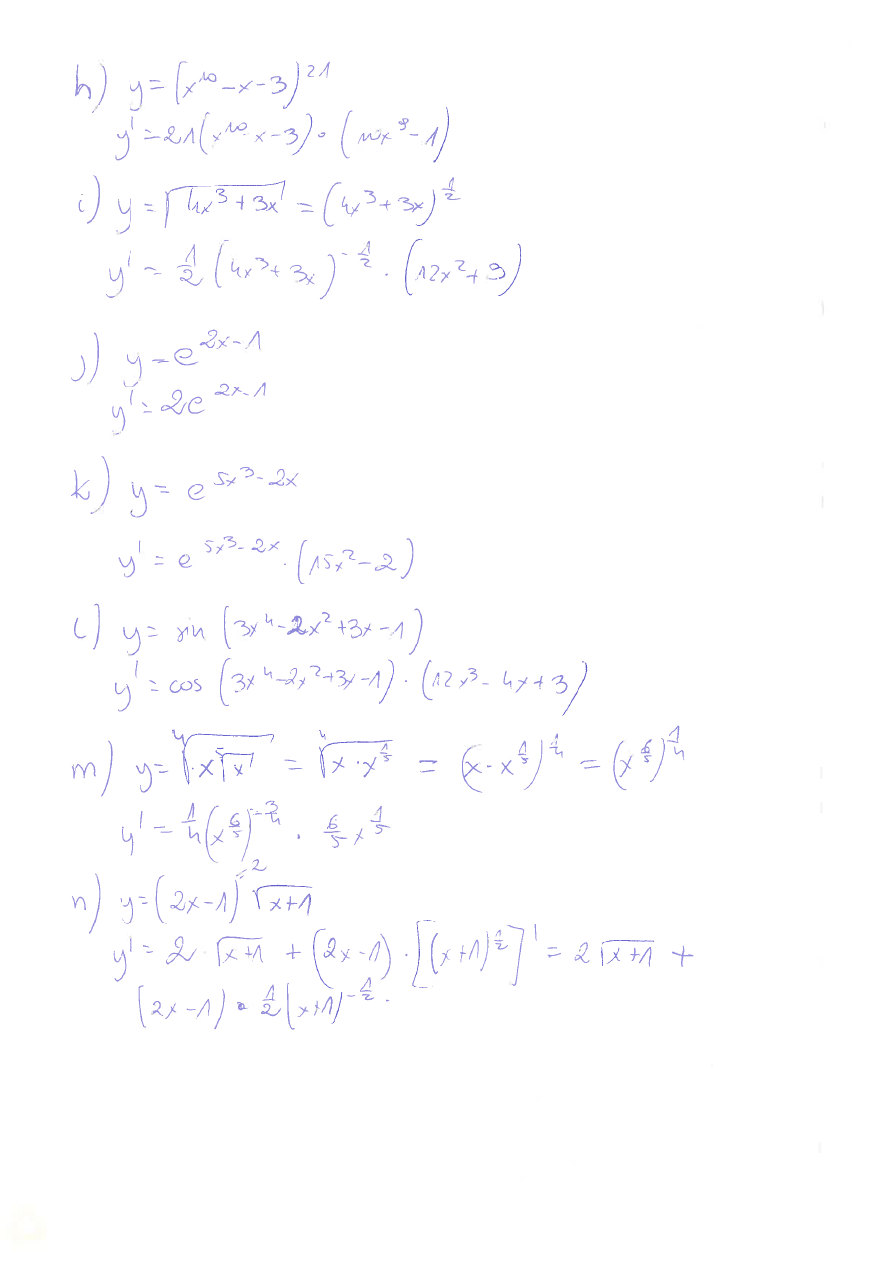 h) y = (x^10 - x - 3)^21
y' = 21(x^10 x - 3) · (10x^9 - 1)
i) y = √(4x^3 + 3x) = (4x^3 + 3x)^(1/2)
y' = 1/2 (4x^3 + 3x)^(-1/2) · (12x^2 + 3)
j) y = e^(2x-1)
y' = 2e^(2x-1)
k) y = e^(5x^3 - 2x)
y' = e^(5x^3 - 2x) · (15x^2 - 2)
l) y = sin (3x^4 - 2x^2 + 3x - 1)
y' = cos (3x^4 - 2x^2 + 3x - 1) · (12x^3 - 4x + 3)
m) y = ⁴√(x ⁵√x) = ⁴√(x · x^(1/5)) = (x · x^(1/5))^(1/4) = (x^(6/5))^(1/4)
y' = 1/4 (x^(6/5))^(-3/4) · 6/5 x^(1/5)
n) y = (2x - 1) √(x+1)
y' = 2 · √(x+1) + (2x - 1) · [(x+1)^(1/2)]' = 2 √(x+1) +
(2x - 1) · 1/2 (x+1)^(-1/2) .